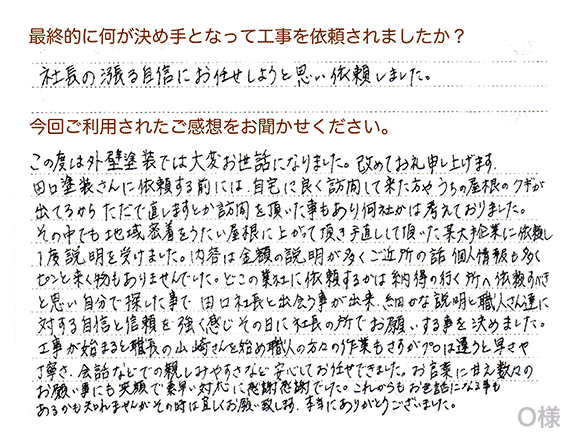 最終的に何が決め手となって工事を依頼されましたか？
社長の漲る自信にお任せしようと思い依頼しました。
今回ご利用されたご感想をお聞かせください。
この度は外壁塗装では大変お世話になりました。改めてお礼申し上げます。
田口塗装さんに依頼する前には、自宅に良く訪問して来た方やうちの屋根のクギが
出てるからただで直しますとか訪問を頂いた事もあり何社かは考えておりました。
その中でも地域密着をうたい屋根に上がって頂き手直しして頂いた某大手企業に依頼し
1度説明を受けました。内容は金額の説明が多くご近所の話 個人情報も多く
ピンと来く物もありませんでした。どこの業社に依頼するかは納得の行く所へ依頼すべき
と思い自分で探した事で田口社長と出会う事が出来、細かな説明と職人さん達に
対する自信と信頼を強く感じその日に社長の所でお願いする事を決めました。
工事が始まると職長の山崎さんを始め職人の方々の作業もさすがプロは違うと早さや
丁寧さ、会話などでの親しみやすさなど安心してお任せできました。お言葉に甘え数々の
お願い事にも笑顔で素早い対応に感謝感謝でした。これからもお世話になる事も
あるかも知れませんがその時は宜しくお願い致します。本当にありがとうございました。
O様